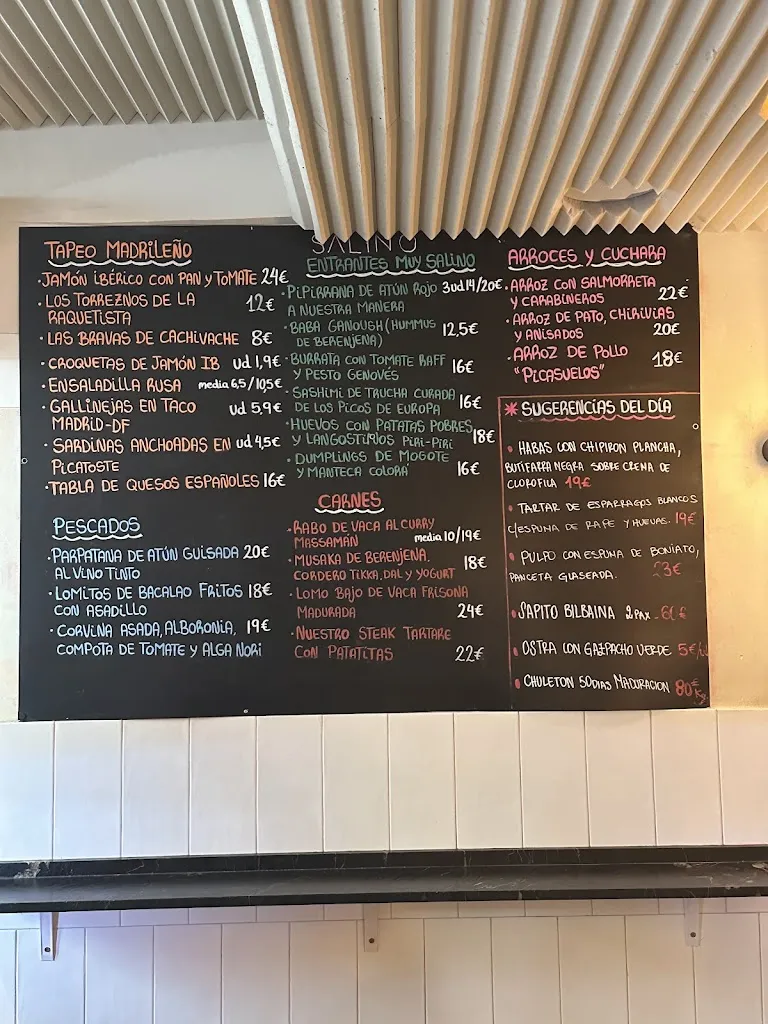 SALINO
TAPEO MADRILEÑO
·JAMÓN IBÉRICO CON PAN y TOMATE 24€
·LOS TORREZNOS DE LA 12€
RAQUETISTA
·LAS BRAVAS DE CACHIVACHE 8€
·CROQUETAS DE JAMÓN IB ud 1,9€
·ENSALADILLA RUSA media 6,5/10,5€
·GALLINEJAS EN TACO ud 5,9€
MADRID-DF
·SARDINAS ANCHOADAS EN ud 4,5€
PICATOSTE
·TABLA DE QUESOS ESPAÑOLES 16€
PESCADOS
·PARPATANA DE ATÚN GUISADA 20€
AL VINO TINTO
·LOMITOS DE BACALAO FRITOS 18€
CON ASADILLO
·CORVINA ASADA, ALBORONIA, 19€
COMPOTA DE TOMATE Y ALGA NORI
ENTRANTES MUY SALINO
·PIPIRRANA DE ATÚN ROJO 3ud 14/20€
A NUESTRA MANERA
·BABA GANOUGH (HUMMUS 12,5€
DE BERENJENA)
·BURRATA CON TOMATE RAFF 16€
Y PESTO GENOVÉS
·SASHIMI DE TRUCHA CURADA 16€
DE LOS PICOS DE EUROPA
·HUEVOS CON PATATAS POBRES
Y LANGOSTINOS PIRI-PIRI 18€
·DUMPLINGS DE MOGOTE
Y MANTECA COLORÁ 16€
CARNES
·RABO DE VACA AL CURRY
MASSAMAN media 10/19€
·MUSAKA DE BERENJENA. 18€
CORDERO TIKKA, DAL Y YOGURT
·LOMO BAJO DE VACA FRISONA
MADURADA 24€
·NUESTRO STEAK TARTARE
CON PATATITAS 22€
ARROCES Y CUCHARA
·ARROZ CON SALMORRETA
Y CARABINEROS 22€
·ARROZ DE PATO, CHIRIVIAS
Y ANISADOS 20€
·ARROZ DE POLLO 18€
"PICASUELOS"
* SUGERENCIAS DEL DÍA
• HABAS CON CHIPIRON PLANCHA,
BUTIFARRA NEGRA SOBRE CREMA DE
CLOROFILA 19€
• TARTAR DE ESPARRAGOS BLANCOS
C/ESPUMA DE RAFE Y HUEVAS. 19€
• PULPO CON ESPUMA DE BONIATO,
PANCETA GLASEADA. 23€
• SAPITO BILBAINA 2 PAX -
• OSTRA CON GAZPACHO VERDE 5€/
• CHULETON 50 DIAS MADURACION 80€ Kg